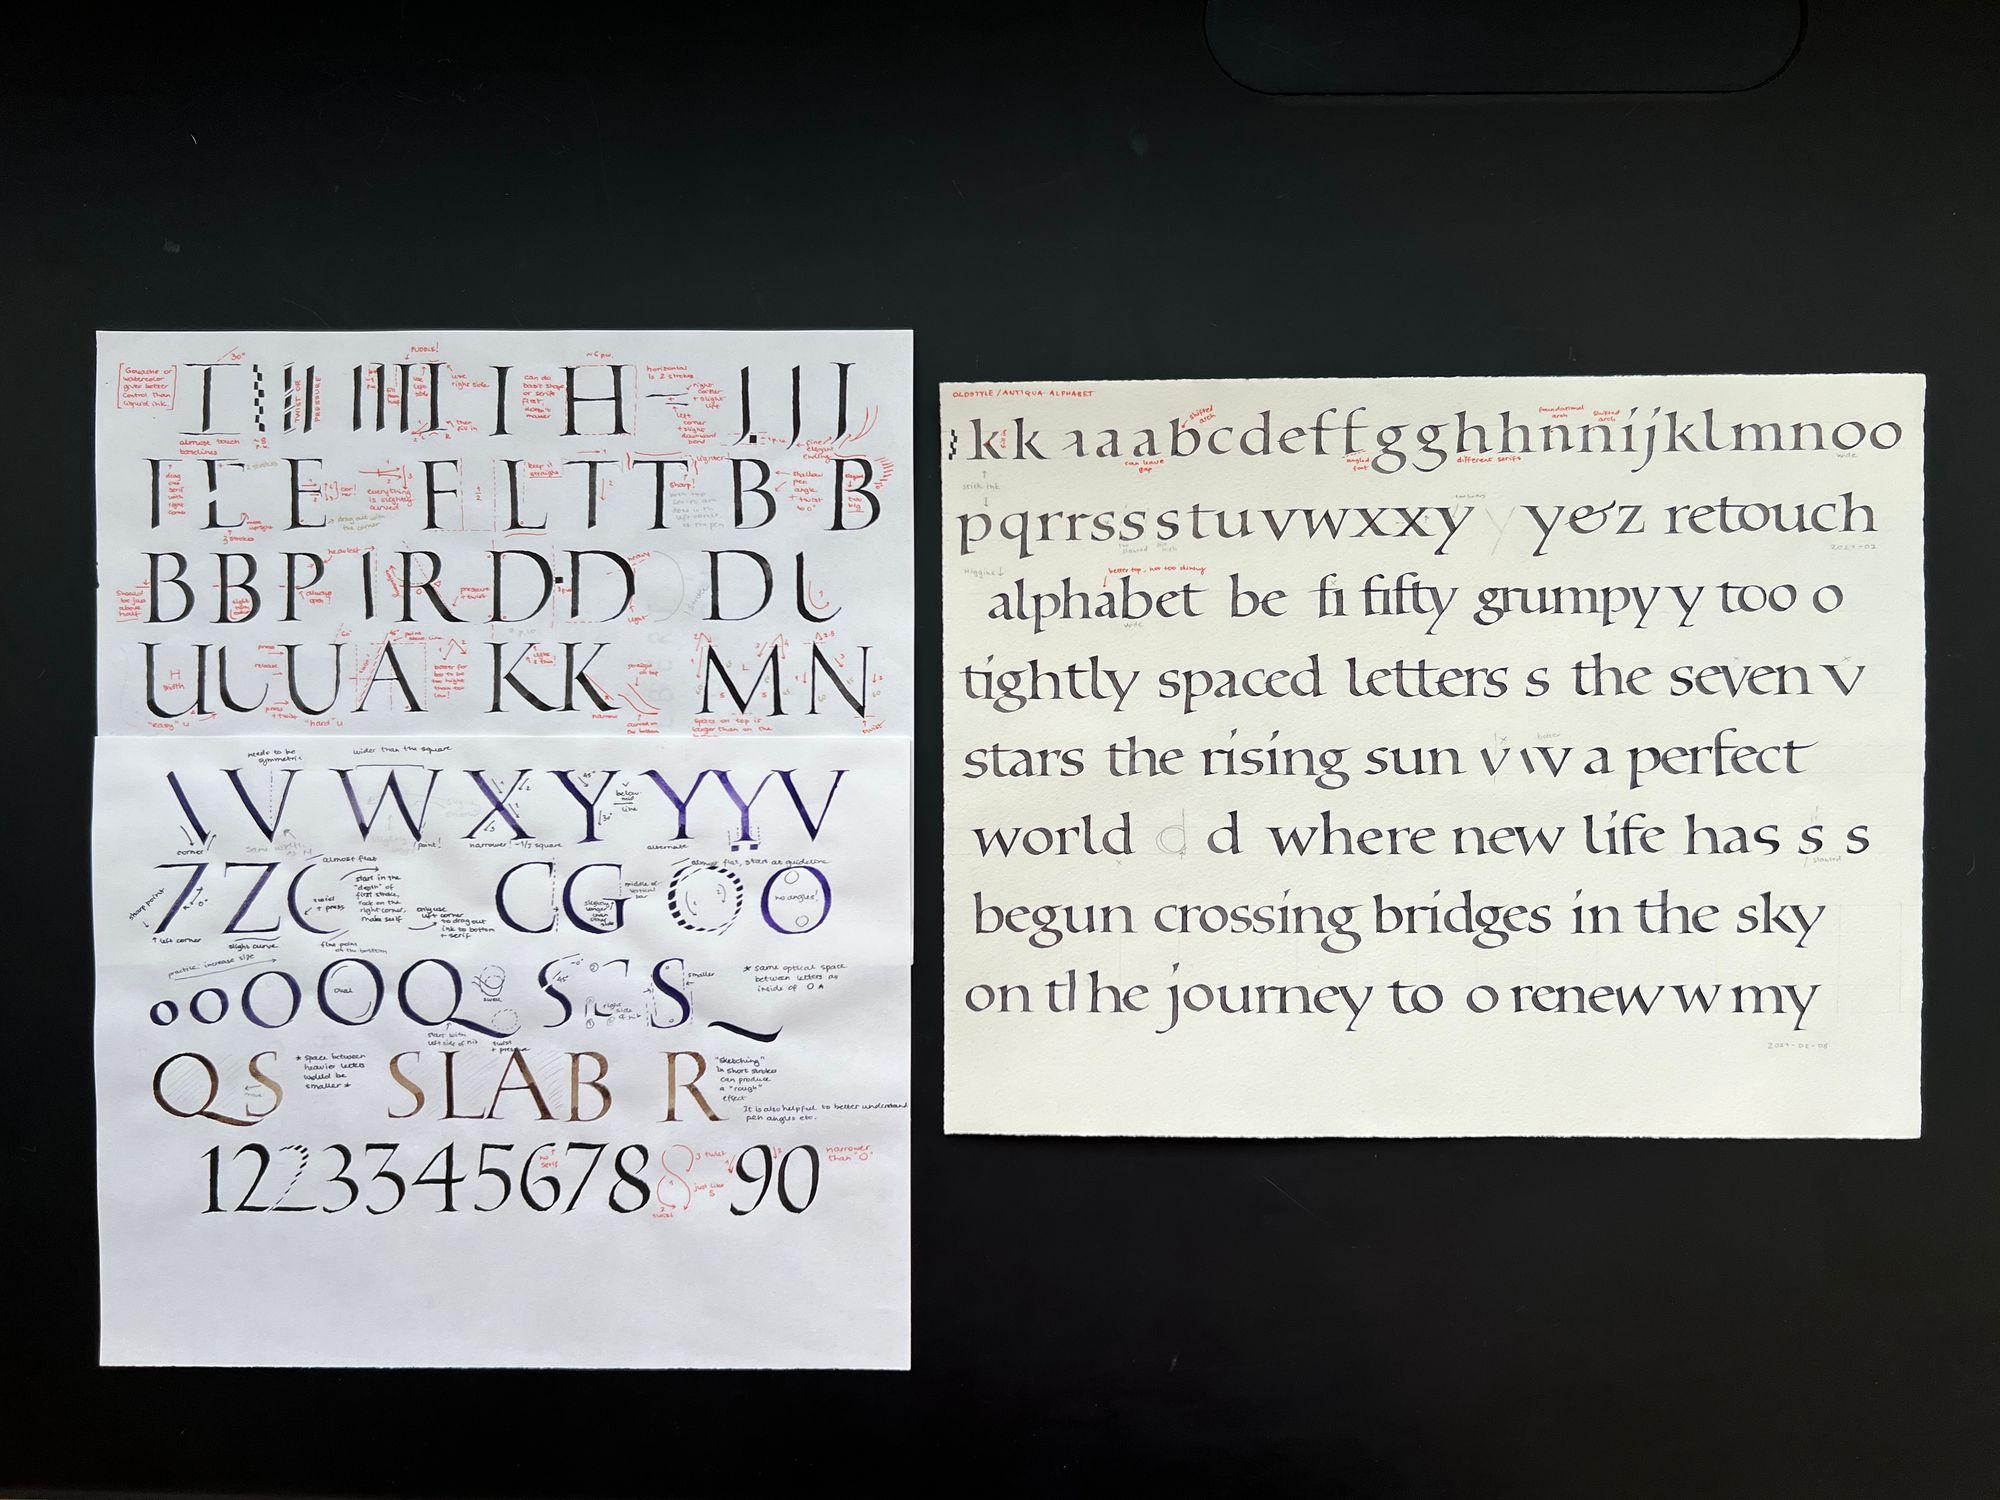 Gouache or watercolor gives better control than liquid ink.
30°
TWIST OR PRESSURE
PUDDLE!
use right side
can do basic shape or serif first, doesn't matter
~6 p.w.
horizontal is 2 strokes
right corner + slight lift
left corner + slight downward bend
1 p.w.
finer elegant ending
then fill in
I I H J J J
almost touch baselines
~8 p.w.
I L E F L T T B B
drag one serif with right corner
2 strokes
more upright
3 strokes
everything is slightly curved
drag out with the corner
1/2
keep it straight
lighter!
sharp!
shallow pen angle + twist to 0°
too big
B B P I R D D D U
should be just above half
heaviest
always open!
pressure + twist
heavy
light
U U U A K K M N
H width
"easy" u
press
release
press + twist
"hard" u
60°
45°
point above line
better for bar to be too hight than too low!
straight on top
narrow
curved on the bottom
space on top is larger than on the
twist
needs to be symmetric
wider than the square
\ V W X Y Y Y V
corner
same width as N
point!
narrower! ~1/2 square
45°
30°
V below mid line
alternate
7 Z C C G O O
sharp point
0°
left corner
almost flat
slight curve
twist + press
fine point at the bottom
start in the "depth" of first stroke, rock on the right corner, make serif
only use left corner to drag out ink to bottom + serif
slightly longer than other side
middle of vertical bar
almost flat, start at guideline
no angles!
practice: increase size
o o O O Q S S
oval
start with left side of nib
swell
twist + pressure
45°
~0°
right side of nib
smaller
* same optical space between letters as inside of O *
Q S SLAB R
move
* space between heavier letters would be smaller *
"sketching" in short strokes can produce a "rough" effect
It is also helpful to better understand pen angles etc.
1 2 2 3 3 4 5 6 7 8 8 9 0
no serif
3 twist
just like S
2 twist
narrower than "O"
OLDSTYLE / ANTIQUA ALPHABET
k k a a a b c d e f f g g h h n n i j k l m n o o
shifted arch
can leave gap
angled foot
different serifs
foundational arch
shifted arch
wide
stick ink
p q r r s s s t u v w x x y y & z retouch
too slanted
too high
Higgins
better top, not too skinny
alphabet be fi fifty grumpy y too o
wide
tightly spaced letters s the seven v
stars the rising sun v \ v a perfect
better
world d d where new life has s s
slanted
begun crossing bridges in the sky
on tl he journey to o renew w my